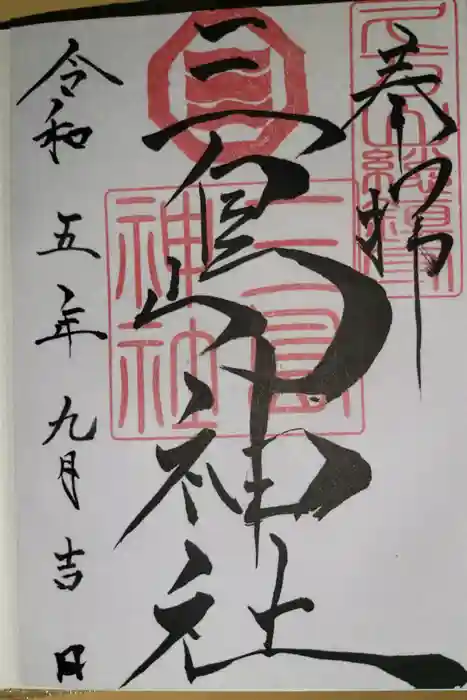 奉拝
三島神社
三島
神社
令和五年九月吉日